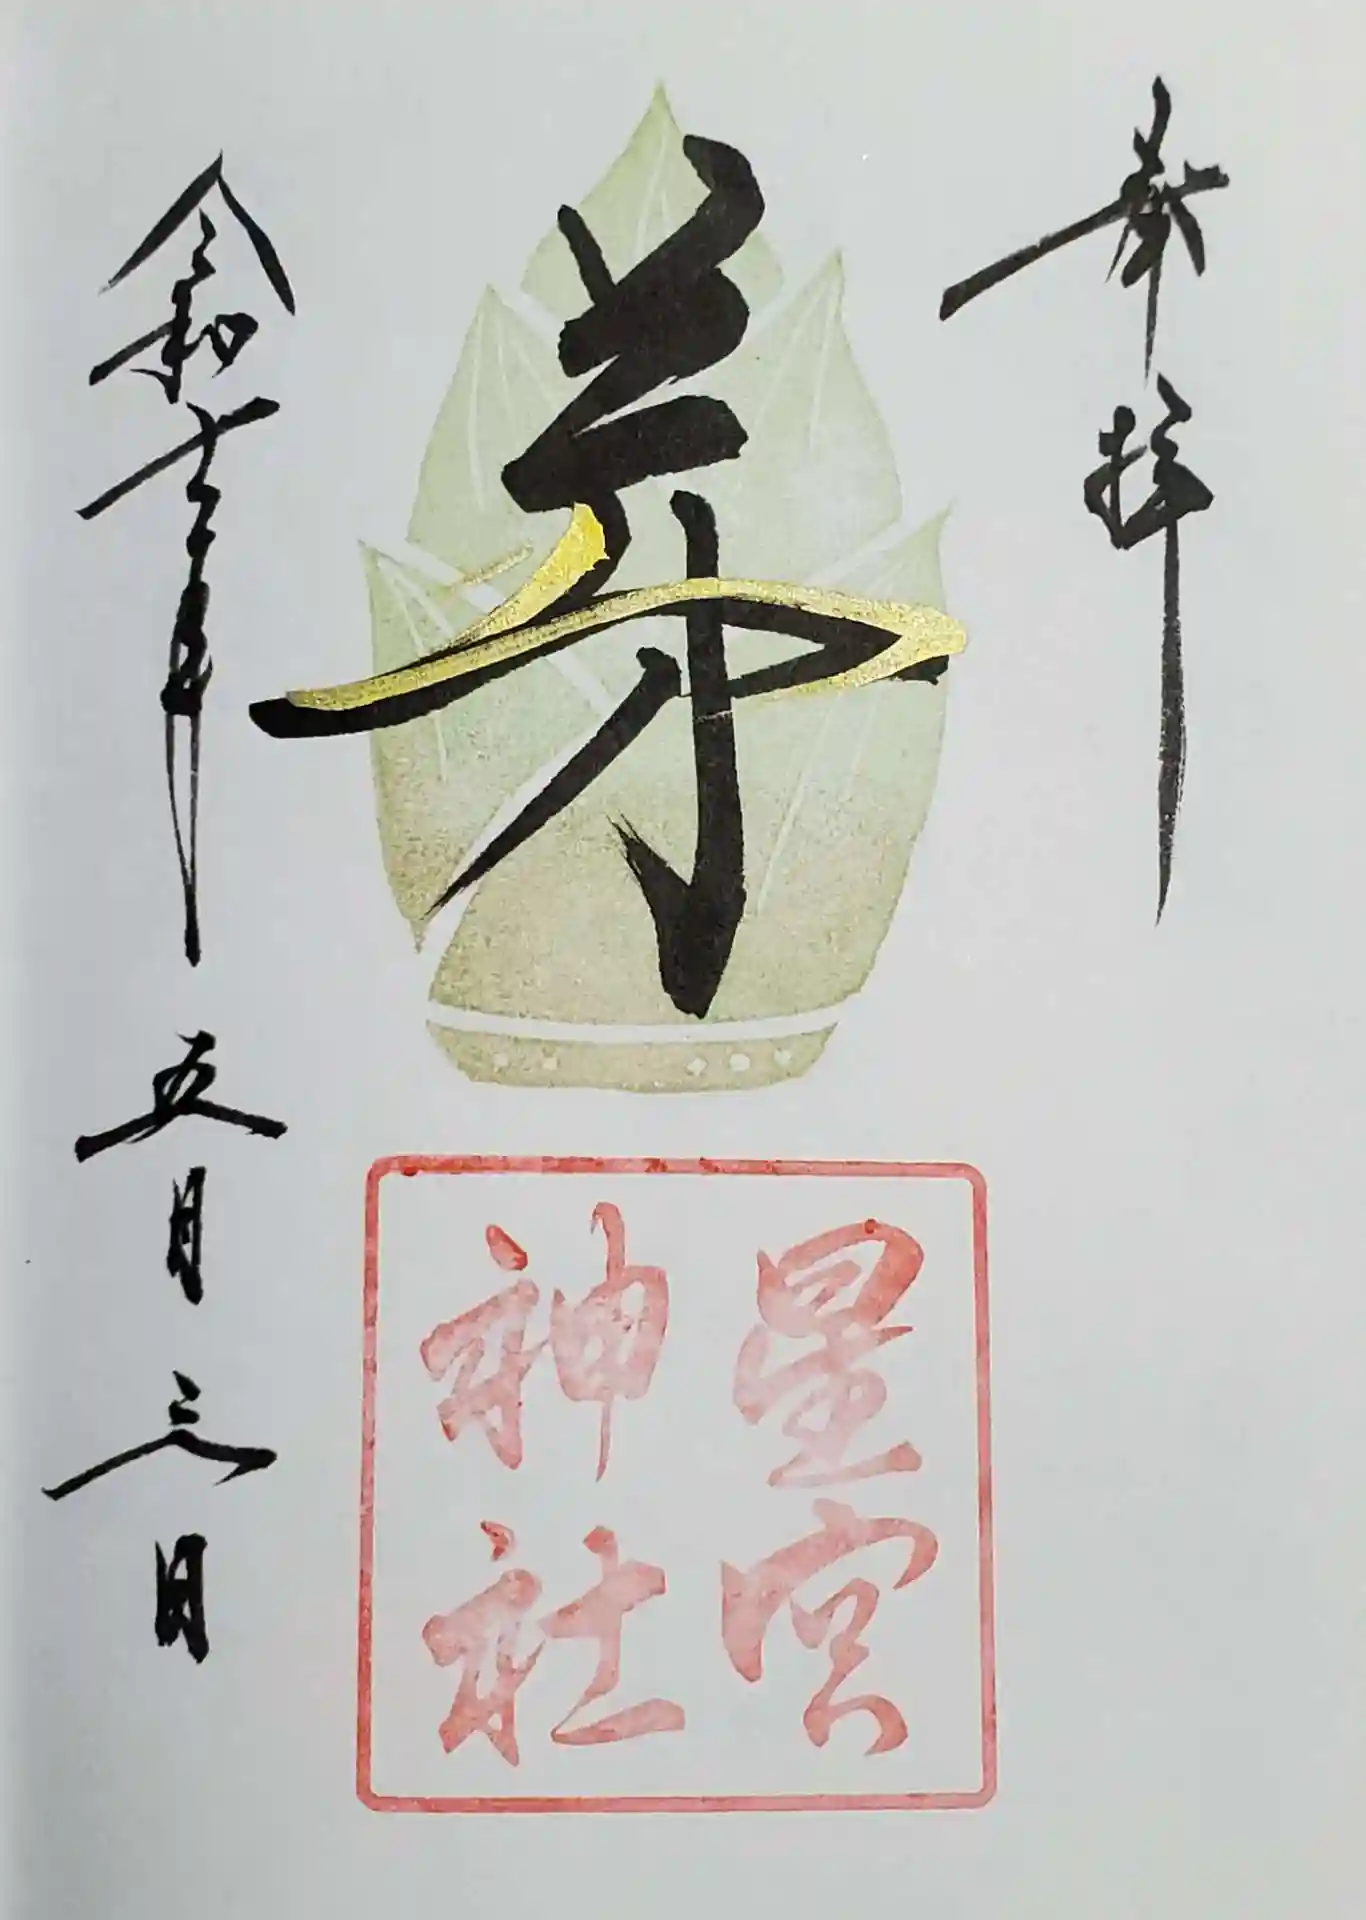 奉拝
芽
星宮
神社
令和七年五月三日